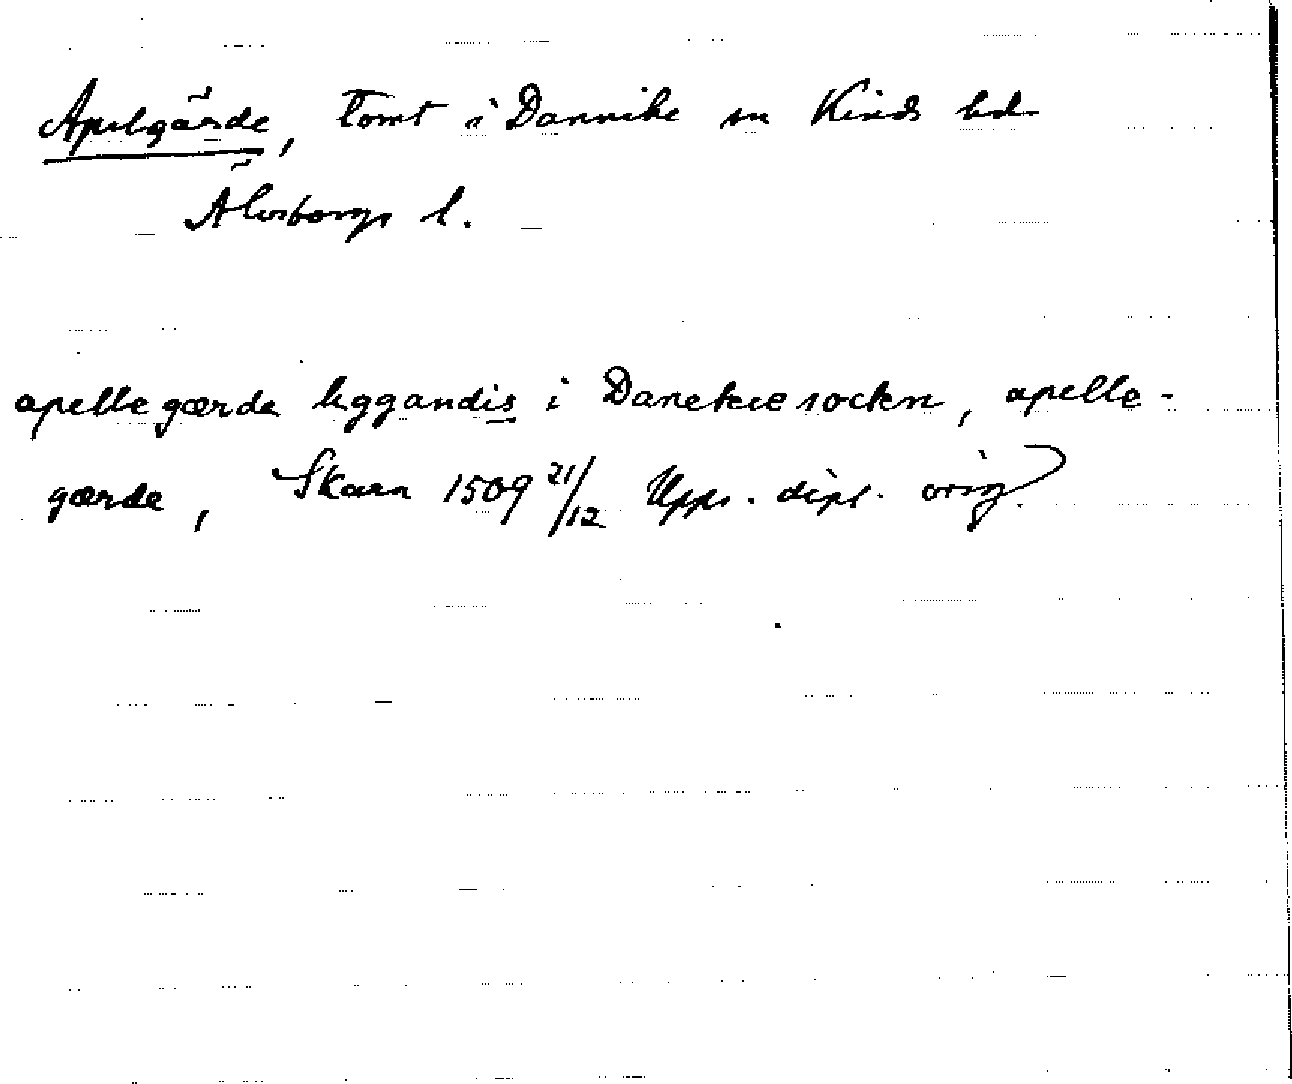 Apelgärde, tomt i Dannike sn Kinds hd
Älvsborgs l.
apellegærde liggandis i Danekie sockn, apelle-
gærde, Skara 1509 21/12 Upps. dipl. orig.